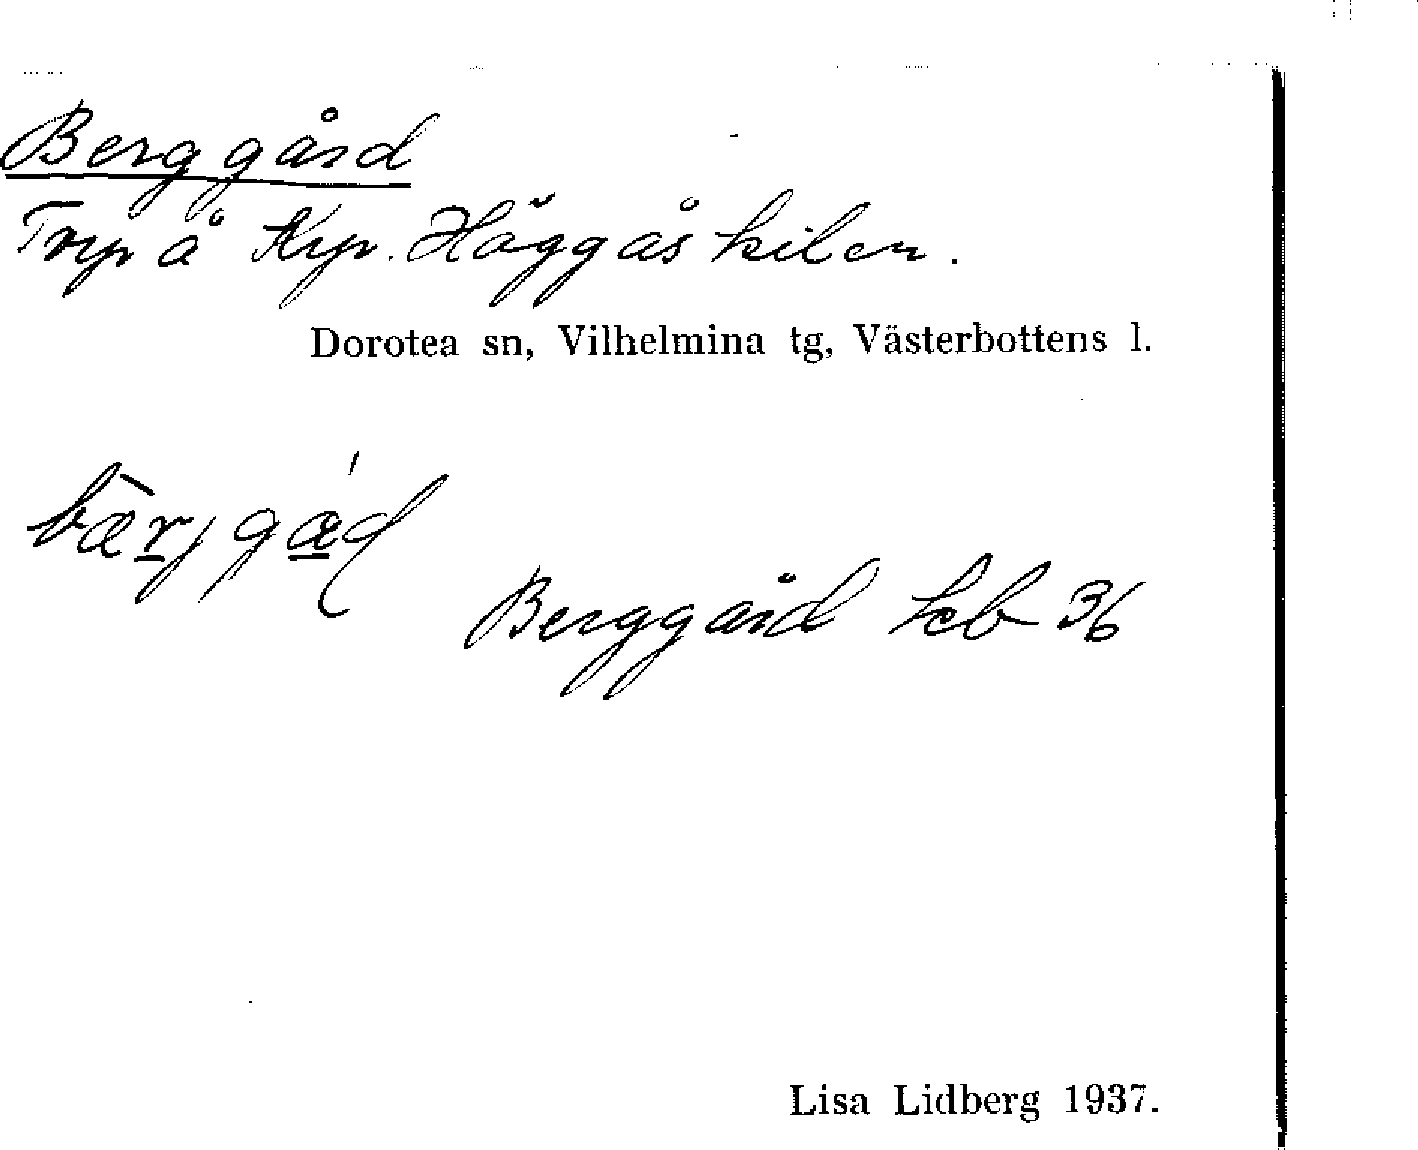 Berggård
Torp å Krp. Häggåskilen.
Dorotea sn, Vilhelmina tg, Västerbottens l.
Berggård kb 36
Lisa Lidberg 1937.